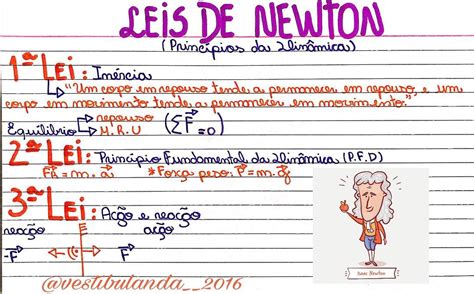 LEIS DE NEWTON
(Princípios da Dinâmica)
1ª LEI: Inércia
"Um corpo em repouso tende a permanecer em repouso, e um
corpo em movimento tende a permanecer em movimento."
Equilíbrio repouso
M.R.U (ΣF = 0)
2ª LEI: Princípio Fundamental da Dinâmica (P.F.D)
FR = m.a *Força peso: P = m.g
3ª LEI: Ação e reação
reação ação
-F F
Isaac Newton
@vestibulanda__2016